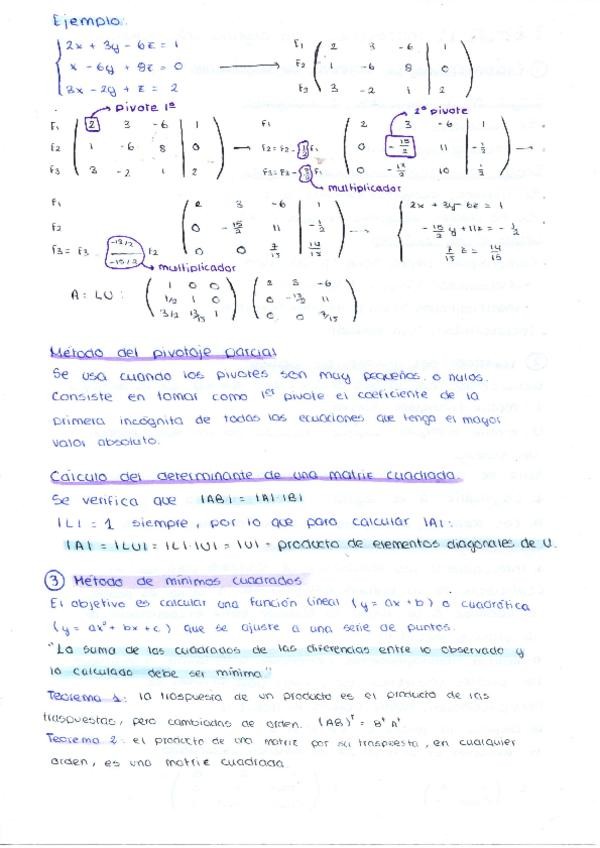 Ejemplo:
2x + 3y - 6z = 1 F1 2 3 -6 1
x - 6y + 8z = 0 → F2 1 -6 8 0
3x - 2y + z = 2 F3 3 -2 1 2
pivote 1º 2º pivote
F1 2 3 -6 1 F1 2 3 -6 1
F2 1 -6 8 0 → F2 = F2 - 1/2 F1 0 -15/2 11 -1/2 →
F3 3 -2 1 2 F3 = F3 - 3/2 F1 0 -13/2 10 1/2
multiplicador
F1 2 3 -6 1 2x + 3y - 6z = 1
F2 0 -15/2 11 -1/2 → -15/2 y + 11z = -1/2
F3 = F3 -13/2 / -15/2 F2 0 0 7/15 14/15 7/15 z = 14/15
multiplicador
A = LU : 1 0 0 2 3 -6
1/2 1 0 0 -15/2 11
3/2 13/15 1 0 0 7/15
Método del pivotaje parcial
Se usa cuando los pivotes son muy pequeños o nulos.
Consiste en tomar como 1er pivote el coeficiente de la
primera incógnita de todas las ecuaciones que tenga el mayor
valor absoluto.
Cálculo del determinante de una matriz cuadrada.
Se verifica que |AB| = |A|·|B|
|L| = 1 siempre, por lo que para calcular |A|:
|A| = |LU| = |L|·|U| = |U| = producto de elementos diagonales de U.
3 Método de mínimos cuadrados
El objetivo es calcular una función lineal (y = ax + b) o cuadrática
(y = ax² + bx + c) que se ajuste a una serie de puntos.
"La suma de los cuadrados de las diferencias entre lo observado y
lo calculado debe ser mínima"
Teorema 1: la traspuesta de un producto es el producto de las
traspuestas, pero cambiadas de orden. (AB)ᵗ = Bᵗ Aᵗ
Teorema 2: el producto de una matriz por su traspuesta, en cualquier
orden, es una matriz cuadrada